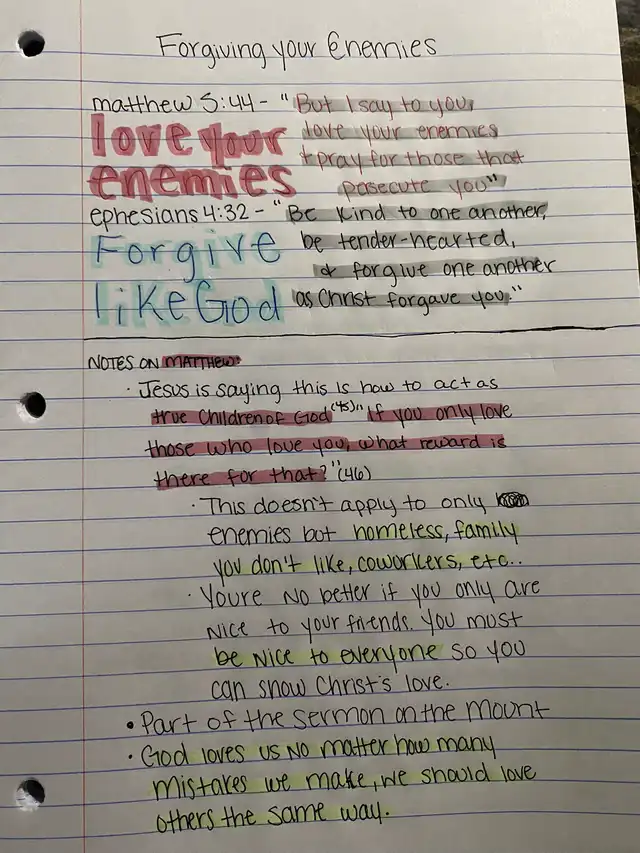 Forgiving your Enemies
matthew 5:44 - "But I say to you,
love your enemies
+ pray for those that
pasecute you"
love your
enemies
ephesians 4:32 - "Be kind to one another,
be tender-hearted,
& forgive one another
as Christ forgave you."
Forgive
like God
NOTES ON MATTHEW:
· Jesus is saying this is how to act as
true children of God (45)" If you only love
those who love you, what reward is
there for that?" (46)
· This doesn't apply to only
enemies but homeless, family
you don't like, coworkers, etc..
· Youre no better if you only are
nice to your friends. You must
be nice to everyone so you
can show Christ's love.
• Part of the sermon on the mount
· God loves us no matter how many
mistakes we make, we should love
others the same way.